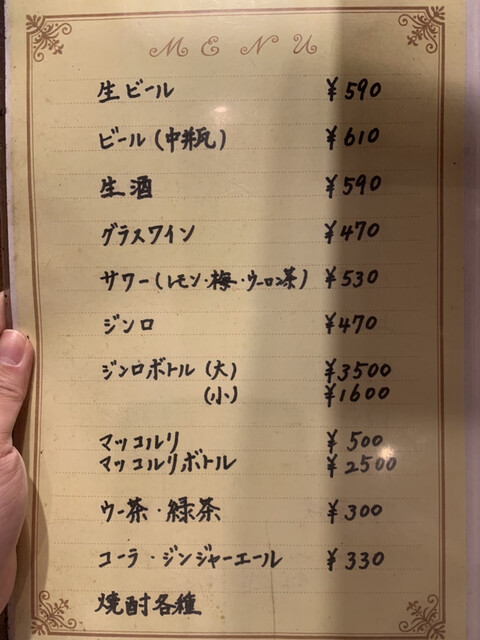 MENU
生ビール ¥590
ビール(中瓶) ¥610
生酒 ¥590
グラスワイン ¥470
サワー(レモン・梅・ウーロン茶) ¥530
ジンロ ¥470
ジンロボトル(大) ¥3500
(小) ¥1600
マッコルリ ¥500
マッコルリボトル ¥2500
ウー茶・緑茶 ¥300
コーラ・ジンジャーエール ¥330
焼酎各種